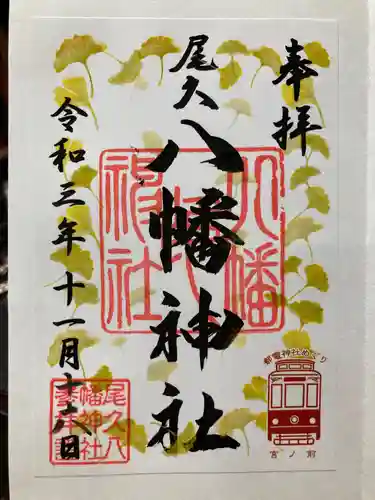 奉拝
尾久
八幡神社
八幡神社
令和三年十一月十六日
尾久八幡神社
都電神社めぐり
宮ノ前